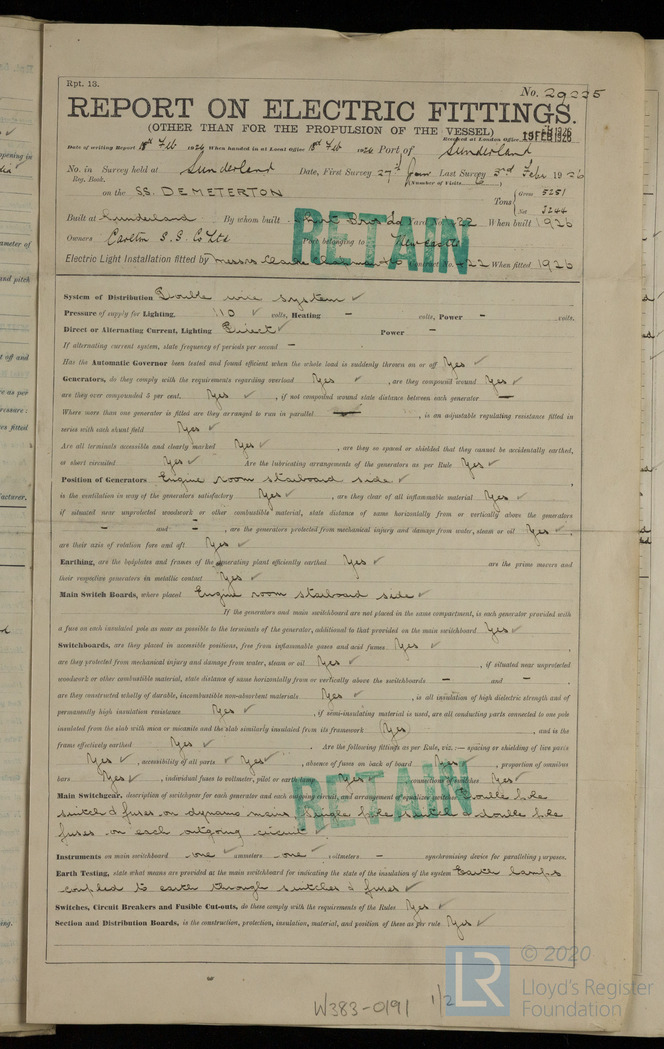 Rpt. 13.
No. 29225
REPORT ON ELECTRIC FITTINGS.
(OTHER THAN FOR THE PROPULSION OF THE VESSEL)
Received at London Office
Date of writing Report 18th Feb 1926 When handed in at Local Office 18th Feb 1926 Port of Sunderland
No. in Survey held at Sunderland Date, First Survey 27th Jan Last Survey 3rd Feb 1926
Reg. Book. (Number of Visits 6)
on the SS. DEMETERTON Tons { Gross 5251
Net 3244
Built at Sunderland By whom built Short Bros Ld Yard No. 422 When built 1926
Owners Carlton S.S. Co Ltd Port belonging to Newcastle
Electric Light Installation fitted by Messrs Contract No. 422 When fitted 1926
RETAIN
System of Distribution Double wire system ✓
Pressure of supply for Lighting, 110 ✓ volts, Heating – volts, Power – volts.
Direct or Alternating Current, Lighting Direct ✓ Power –
If alternating current system, state frequency of periods per second –
Has the Automatic Governor been tested and found efficient when the whole load is suddenly thrown on or off Yes ✓
Generators, do they comply with the requirements regarding overload Yes ✓, are they compound wound Yes ✓
are they over compounded 5 per cent. Yes ✓, if not compound wound state distance between each generator —
Where more than one generator is fitted are they arranged to run in parallel — ✓, is an adjustable regulating resistance fitted in
series with each shunt field Yes ✓
Are all terminals accessible and clearly marked Yes ✓, are they so spaced or shielded that they cannot be accidentally earthed,
or short circuited Yes ✓ Are the lubricating arrangements of the generators as per Rule Yes ✓
Position of Generators Engine room starboard side ✓
is the ventilation in way of the generators satisfactory Yes ✓, are they clear of all inflammable material Yes ✓
if situated near unprotected woodwork or other combustible material, state distance of same horizontally from or vertically above the generators
– and –, are the generators protected from mechanical injury and damage from water, steam or oil Yes ✓,
are their axis of rotation fore and aft Yes ✓
Earthing, are the bedplates and frames of the generating plant efficiently earthed Yes ✓ are the prime movers and
their respective generators in metallic contact Yes ✓
Main Switch Boards, where placed Engine room starboard side ✓
If the generators and main switchboard are not placed in the same compartment, is each generator provided with
a fuse on each insulated pole as near as possible to the terminals of the generator, additional to that provided on the main switchboard Yes ✓
Switchboards, are they placed in accessible positions, free from inflammable gases and acid fumes Yes ✓,
are they protected from mechanical injury and damage from water, steam or oil Yes ✓, if situated near unprotected
woodwork or other combustible material, state distance of same horizontally from or vertically above the switchboards – and –,
are they constructed wholly of durable, incombustible non-absorbent materials Yes ✓, is all insulation of high dielectric strength and of
permanently high insulation resistance Yes ✓, if semi-insulating material is used, are all conducting parts connected to one pole
insulated from the slab with mica or micanite and the slab similarly insulated from its framework (Yes), and is the
frame effectively earthed Yes ✓. Are the following fittings as per Rule, viz.:— spacing or shielding of live parts
Yes ✓, accessibility of all parts Yes ✓, absence of fuses on back of board Yes ✓, proportion of omnibus
bars Yes ✓, individual fuses to voltmeter, pilot or earth lamp Yes ✓, connections of switches Yes ✓
RETAIN
Main Switchgear, description of switchgear for each generator and each outgoing circuit, and arrangement of equalizer switches Double Pole
switch & fuses on dynamo mains. Single Pole switch & double Pole
fuses on each outgoing circuit
Instruments on main switchboard one ✓ ammeters one ✓ voltmeters – synchronising device for paralleling purposes.
Earth Testing, state what means are provided at the main switchboard for indicating the state of the insulation of the system Earth lamps
coupled to earth through switches & fuses ✓
Switches, Circuit Breakers and Fusible Cut-outs, do these comply with the requirements of the Rules Yes ✓
Section and Distribution Boards, is the construction, protection, insulation, material, and position of these as per rule Yes ✓
W383-0191 1/2
LR
© 2020
Lloyd's Register
Foundation